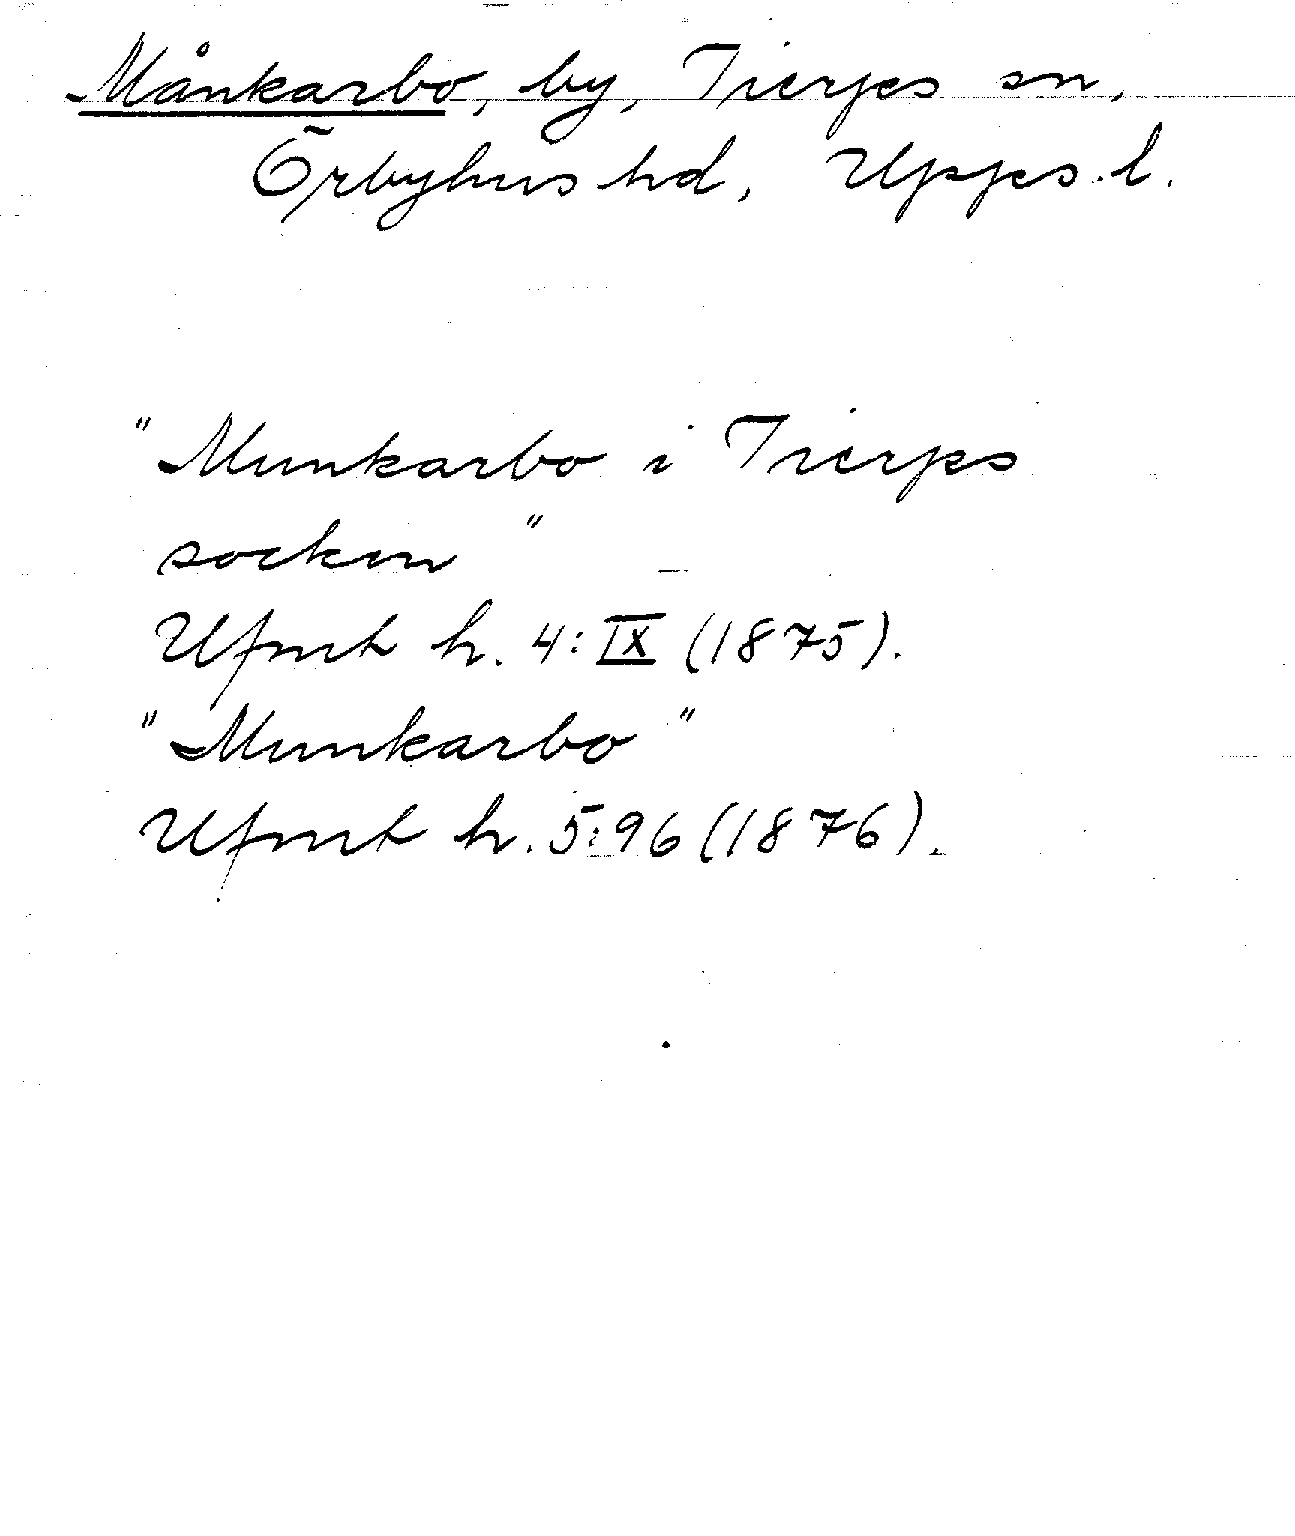 Månkarbo, by, Tierps sn,
Örbyhus hd, Upps. l.
"Munkarbo i Tierps
socken"
Ufmt h. 4: IX (1875).
"Munkarbo"
Ufmt h. 5:96 (1876).